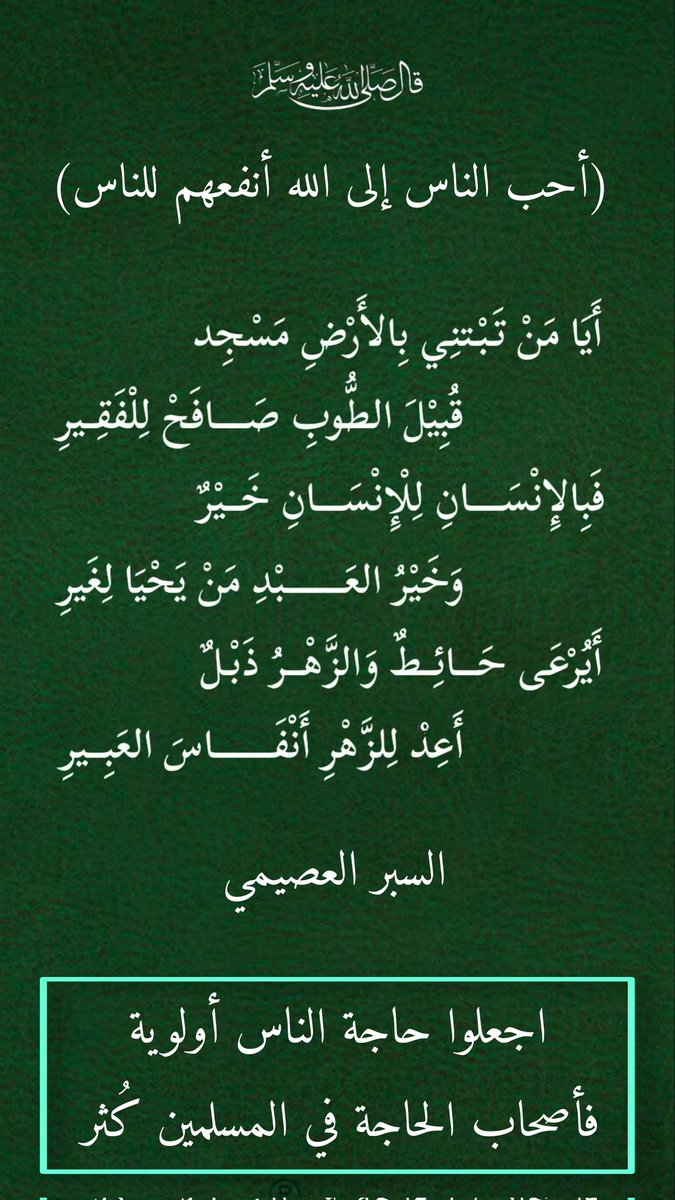 قال صلى الله عليه وسلم
(أحب الناس إلى الله أنفعهم للناس)
أَيَا مَنْ تَبْتنِي بِالأَرْضِ مَسْجِد
قُبِيْلَ الطُّوبِ صَـــافَحْ لِلْفَقِـيرِ
فَبِالإِنْسَـــانِ لِلْإِنْسَـــانِ خَـيْرٌ
وَخَيْرُ العَـــــبْدِ مَنْ يَحْيَا لِغَيرِ
أَيُرْعَى حَــائِـطٌ وَالزَّهْـرُ ذَبْـلٌ
أَعِدْ لِلزَّهْرِ أَنْفَـــــاسَ العَبِـيرِ
السبر العصيمي
اجعلوا حاجة الناس أولوية
فأصحاب الحاجة في المسلمين كُثر